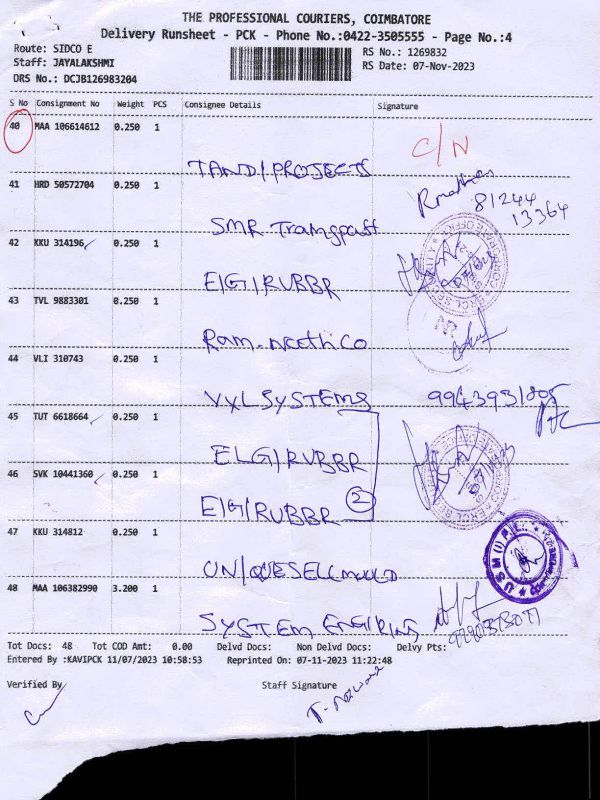 THE PROFESSIONAL COURIERS, COIMBATORE
Delivery Runsheet - PCK - Phone No.:0422-3505555 - Page No.:4
Route: SIDCO E
RS No.: 1269832
Staff: JAYALAKSHMI
RS Date: 07-Nov-2023
DRS No.: DCJB126983204
S No Consignment No Weight PCS Consignee Details Signature
40 MAA 106614612 0.250 1
C/N
TANDI PROJECTS
41 HRD 50572704 0.250 1
81244
13364
SMR Transpast
42 KKU 314196 0.250 1
E|G|RUBBR
43 TVL 9883301 0.250 1
Ram.neethCo
44 VLI 310743 0.250 1
VXL SYSTEMS
45 TUT 6618664 0.250 1
ELG|RUBBR
46 SVK 10441360 0.250 1
E|G|RUBBR 2
47 KKU 314812 0.250 1
USM (I) P
48 MAA 106382990 3.200 1
Tot Docs: 48 Tot COD Amt: 0.00 Delvd Docs: Non Delvd Docs: Delvy Pts:
Entered By :KAVIPCK 11/07/2023 10:58:53 Reprinted On: 07-11-2023 11:22:48
Verified By Staff Signature